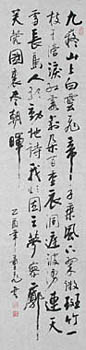 九嶷山上白雲飛帝子乘風下翠微斑竹一
枝千滴淚紅霞萬朵百重衣洞庭波涌連天
雪長島人歌動地詩我欲因之夢寥廓
芙蓉國裏盡朝暉
乙酉年